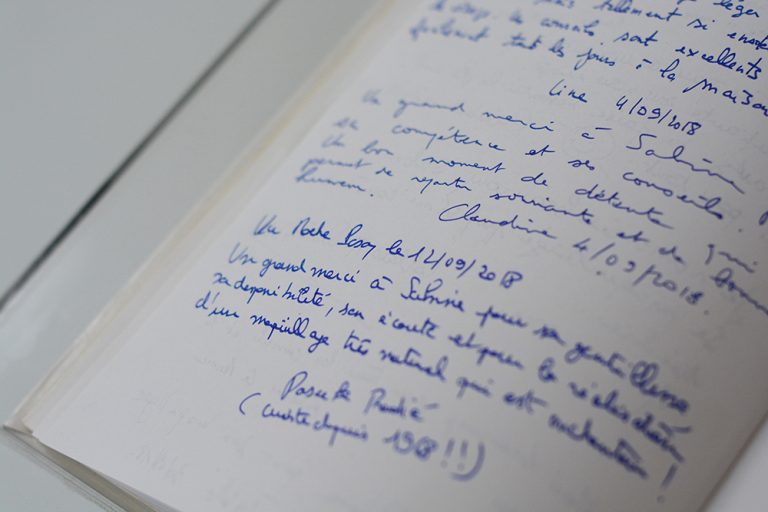 léger
tellement si
les conseils sont excellents
tout les jours à la maison
Line 4/09/2018
Un grand merci à Sabine
sa compétence et ses conseils.
Un bon moment de détente qui
permet de repartir souriante et de bonne
humeur.
Claudine 4/09/2018.
La Roche Posay le 12/09/2018
Un grand merci à Sabine pour sa gentillesse
sa disponibilité, son écoute et pour la réalisation
d'un maquillage très naturel qui est
!
(         depuis 1968 !!!)